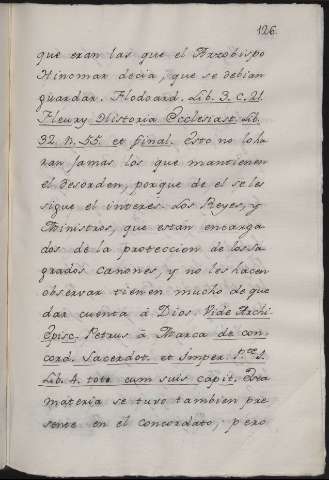 126.
que eran las que el Arzobispo
Hincmar decia, que se debian
guardar. Flodoard. Lib. 3. c. 21
Fleury Historia Ecclesiast. Lib.
32. n. 55. et final. Esto no loha
ran jamas los que mantienen
el desorden, porque de el se les
sigue el interes. Los Reyes, y
Ministros, que estan encarga
dos de la proteccion de los Sa
grados Canones, y no los hacen
observar tienen mucho de que
dar cuenta â Dios. Vide Archi
Episc. Petrus â Marca de con
cord. Sacerdot. et Imper. P.te 1.
Lib. 4. toto cum suis capit. Esta
materia se tuvo tambien pre
sente en el concordato, pero